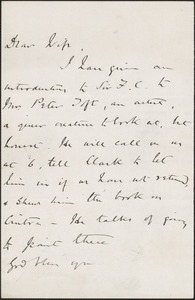 Dear Wife,
I have given an
introduction to Sir F. C. to
Mr. Peter Toft, an artist,
a queer creature to look at, but
honest. He will call on us
at 6, tell Clark to let
him in if we have not returned,
& shew him the book on
Cintra – He talks of going
to paint there
God bless you